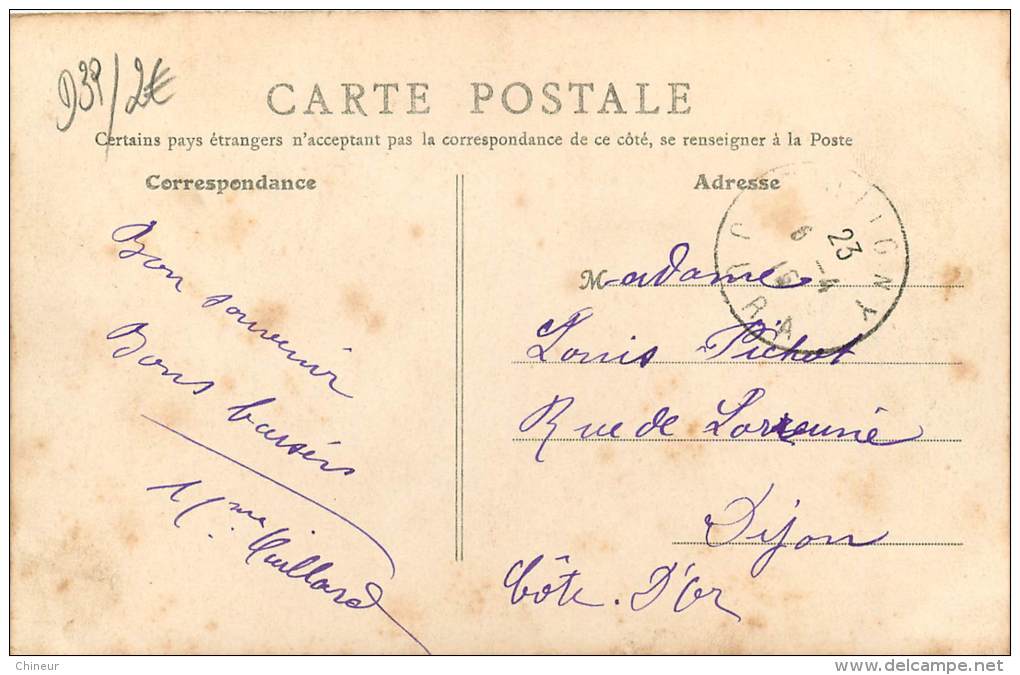 939/2€
CARTE POSTALE
Certains pays étrangers n'acceptant pas la correspondance de ce côté, se renseigner à la Poste
Correspondance
Adresse
Bon souvenir
Bons baisers
Mme
Madame
Louis Pichot
Rue de Lorraine
Dijon
Côte. D'Or
23
6 -4
JURA
Chineur
www.delcampe.net